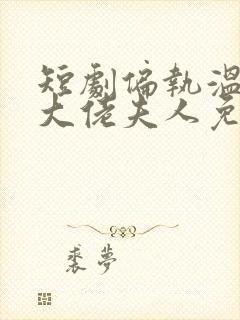 短劇偏執溫
大佬夫人免
裘夢